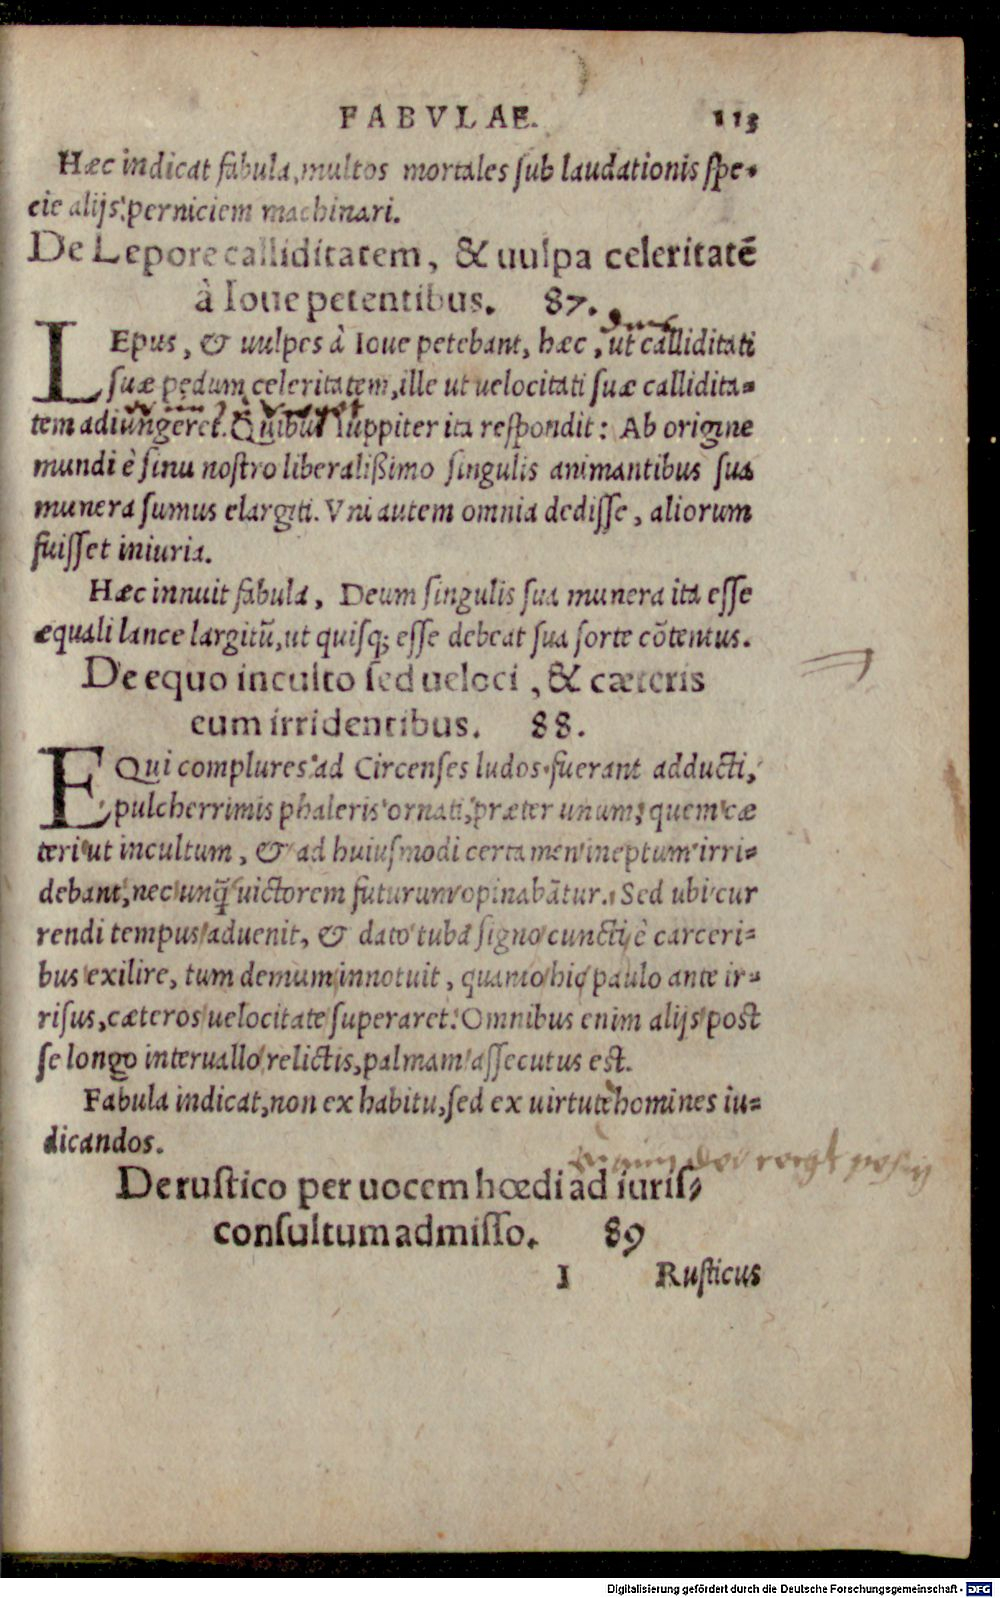 FABVLAE. 113
Hæc indicat fabula, multos mortales sub laudationis spe-
cie alijs perniciem machinari.
De Lepore calliditatem, & uulpa celeritatẽ
à Ioue petentibus. 87.
LEpus, & uulpes à Ioue petebant, hæc, ut calliditati
suæ pedum celeritatem, ille ut uelocitati suæ callidita-
tem adiungeret. Quibus Iuppiter ita respondit: Ab origine
mundi è sinu nostro liberalißimo singulis animantibus sua
munera sumus elargiti. Vni autem omnia dedisse, aliorum
fuisset iniuria.
Hæc innuit fabula, Deum singulis sua munera ita esse
æquali lance largitũ, ut quisq; esse debeat sua sorte cõtentus.
De equo inculto sed ueloci, & cæteris
eum irridentibus. 88.
EQui complures ad Circenses ludos fuerant adducti,
pulcherrimis phaleris ornati, præter unum, quem cæ
teri ut incultum, & ad huiusmodi certamen ineptum irri-
debant, nec unq̃ uictorem futurum opinabãtur. Sed ubi cur
rendi tempus aduenit, & dato tuba signo cuncti è carceri-
bus exilire, tum demum innotuit, quanto hic paulo ante ir-
risus, cæteros uelocitate superaret. Omnibus enim alijs post
se longo interuallo relictis, palmam assecutus est.
Fabula indicat, non ex habitu, sed ex uirtute homines iu-
dicandos.
De rustico per uocem hœdi ad iuris-
consultum admisso. 89
I Rusticus
Digitalisierung gefördert durch die Deutsche Forschungsgemeinschaft - DFG